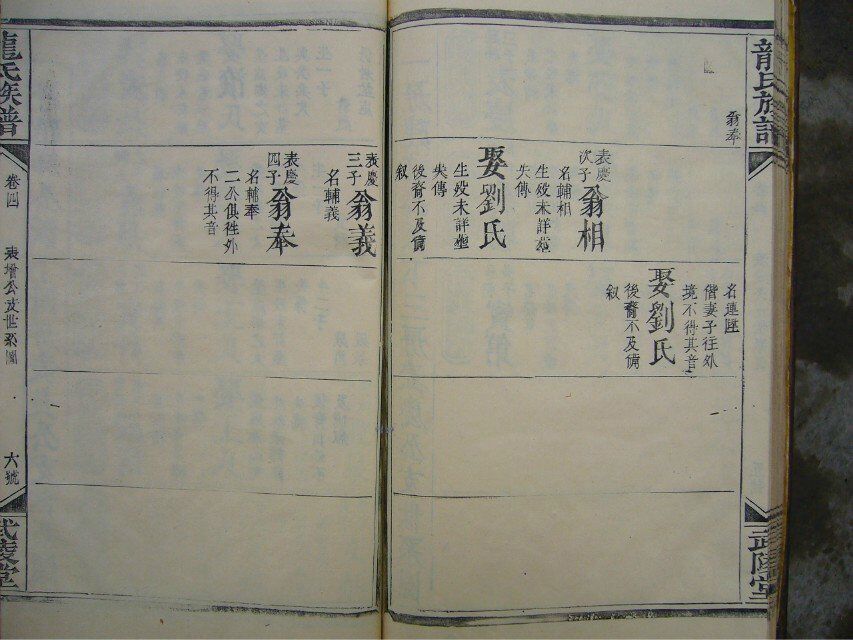 龍氏族譜
翁奉
武陵堂
表慶
次子
翁相
名輔相
生歿未詳塟
失傳
娶劉氏
生歿未詳塟
失傳
後裔不及備
叙
名連匡
偕妻子往外
境不得其音
娶劉氏
後裔不及備
叙
表慶
三子
翁義
名輔義
表慶
四子
翁奉
名輔奉
二公俱徃外
不得其音
龍氏族譜
卷四
表增公支世系圖
六號
武陵堂